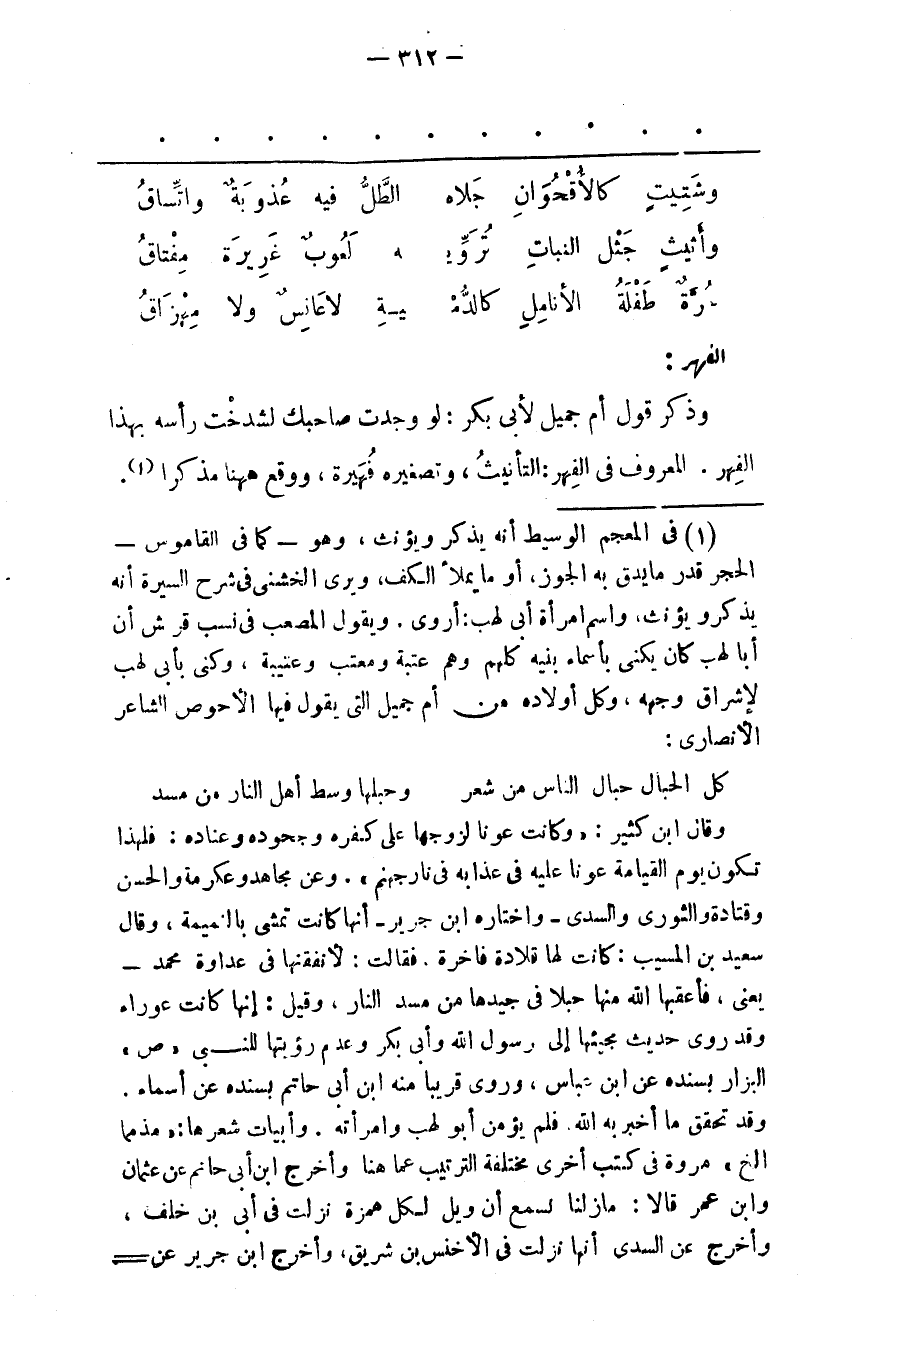 — ٣١٢ —
وشَتِيتٍ كالأُقْحُوَانِ جَلاه الطَّلُّ فيه عُذوبَةٌ واتِّساقُ
وأَثيثٍ جَثْل النباتِ تُرَوِّيـ ـه لَعُوبٌ غَرِيرَة مِفْتاقُ
حُرَّةٌ طَفْلَةُ الأنامِلِ كالدُّمْـ ـيـةِ لاعَانِسٌ ولا مِهْزَاقُ
الفهر :
وذكر قول أم جميل لأبى بكر : لو وجدت صاحبك لشدخْت رأسه بهذا
الفِهر . المعروف فى الفِهر : التأنيثُ ، وتصغيره فُهَيرة ، ووقع ههنا مذكرا (١) .
(١) فى المعجم الوسيط أنه يذكر ويؤنث ، وهو — كما فى القاموس —
الحجر قدر مايدق به الجوز، أو ما يملأ الكف، ويرى الخشنى فى شرح السيرة أنه
يذكر ويؤنث، واسم امرأة أبى لهب : أروى . ويقول المصعب فى نسب قريش أن
أبا لهب كان يكنى بأسماء بنيه كلهم وهم عتبة ومعتب وعتيبة ، وكنى بأبى لهب
لإشراق وجهه ، وكل أولاده من أم جميل التى يقول فيها الأحوص الشاعر
الأنصارى :
كل الحبال حبال الناس من شعر وحبلها وسط أهل النار من مسد
وقال ابن كثير : « وكانت عونا لزوجها على كفره وجحوده وعناده : فلهذا
تكون يوم القيامة عونا عليه فى عذابه فى نار جهنم » . وعن مجاهد وعكرمة والحسن
وقتادة والثورى والسدى - واختاره ابن جرير - أنها كانت تمشى بالنميمة ، وقال
سعيد بن المسيب : كانت لها قلادة فاخرة . فقالت : لأنفقنها فى عداوة محمد —
يعنى ، فأعقبها الله منها حبلا فى جيدها من مسد النار ، وقيل : إنها كانت عوراء
وقد روى حديث مجيئها إلى رسول الله وأبى بكر وعدم رؤيتها للنـبى « ص »
البزار بسنده عن ابن عباس ، وروى قريبا منه ابن أبى حاتم بسنده عن أسماء .
وقد تحقق ما أخبر به الله . فلم يؤمن أبو لهب وامرأته . وأبيات شعرها : « مذمما
الخ » مروة فى كتب أخرى مختلفة الترتيب عما هنا وأخرج ابن أبى حاتم عن عثمان
وابن عمر قالا : مازلنا نسمع أن ويل لـكل همزة نزلت فى أبى بن خلف ،
وأخرج عن السدى أنها نزلت فى الأخنس بن شريق، وأخرج ابن جرير عن =